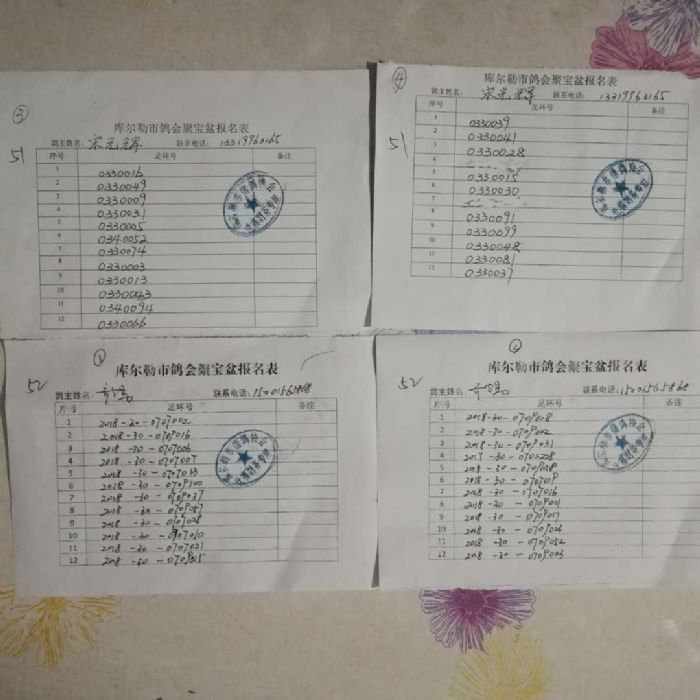 ③
库尔勒市鸽会聚宝盆报名表
51
鸽主姓名： 宋光辉 联系电话：13319963165
序号 足环号 备注
1 0330016
2 0330049
3 0330009
4 0330031
5 0330005
6 0340052
7 0330074
8 0330003
9 0330013
10 0330043
11 0340094
12 0330066
④
库尔勒市鸽会聚宝盆报名表
51
鸽主姓名： 宋光辉 联系电话：13319963165
序号 足环号 备注
1 0330039
2 0330041
3 0330028
4
5 0330015
6 0330030
7
8 0330091
9 0330099
10 0330048
11 0330081
12 0330037
①
库尔勒市鸽会聚宝盆报名表
52
鸽主姓名： 联系电话：15201565868
序号 足环号 备注
1 2018-30-0707002
2 2018-30-0709016
3 2018-30-0707006
4 2018-30-0707007
5 2018-30-0707013
6 2018-30-0709100
7 2018-30-0709037
8 2018-30-0709087
9 2018-30-0707028
10 2018-30-0707010
11 2018-30-0707021
12 2018-30-0709015
②
库尔勒市鸽会聚宝盆报名表
52
鸽主姓名： 联系电话：15201565868
序号 足环号 备注
1 2018-30-0709018
2 2018-30-0709002
3 2018-30-0709031
4 2017-30-0702208
5 2018-30-0709038
6 2018-30-0707019
7 2018-30-0709016
8 2018-30-0709001
9 2018-30-0709017
10 2018-30-0709026
11 2018-30-0709052
12 2018-30-0709003